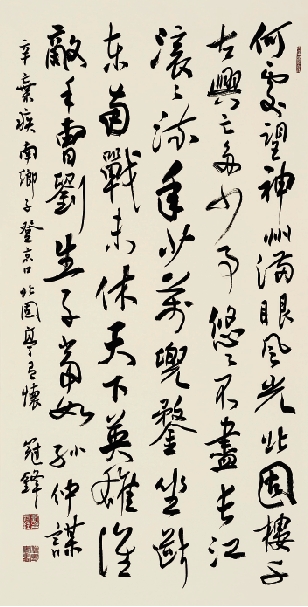 何處望神州滿眼风光北固樓千
古興亡多少事悠々不盡長江
滾々流年少萬兜鍪坐斷
东南戰未休天下英雄誰
敵手曹劉生子當如孫仲謀
辛棄疾南鄉子登京口北固亭有懷 冠鋒